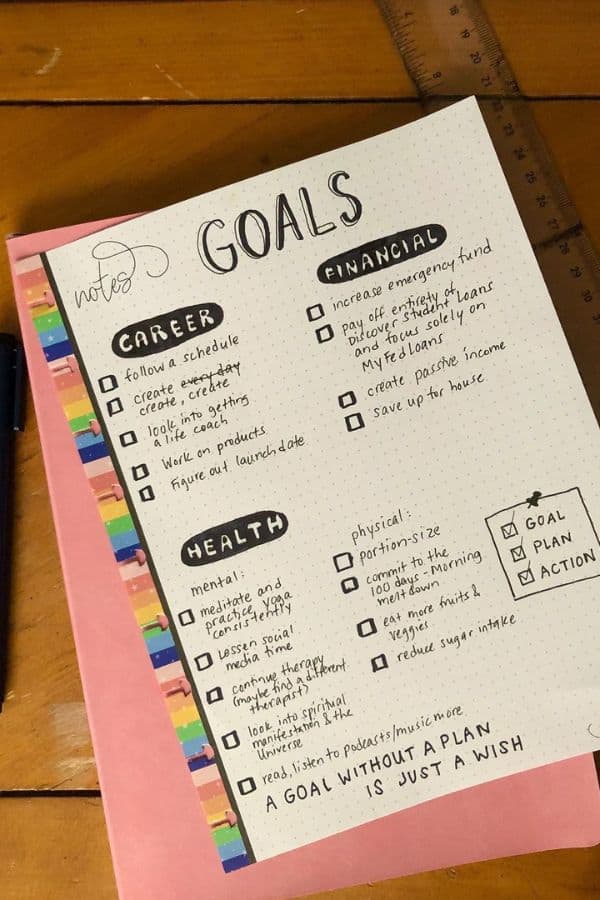 GOALS
notes
CAREER
follow a schedule
create every day
create, create
look into getting
a life coach
Work on products
Figure out launch date
FINANCIAL
increase emergency fund
pay off entirety of
Discover student loans
and focus solely on
MyFedLoans
create passive income
save up for house
HEALTH
mental:
meditate and
practice yoga
consistently
Lessen social
media time
continue therapy
(maybe find a different
therapist)
look into spiritual
manifestation & the
Universe
read, listen to podcasts/music more
physical:
portion-size
commit to the
100 days - Morning
meltdown
eat more fruits &
veggies
reduce sugar intake
GOAL
PLAN
ACTION
A GOAL WITHOUT A PLAN
IS JUST A WISH